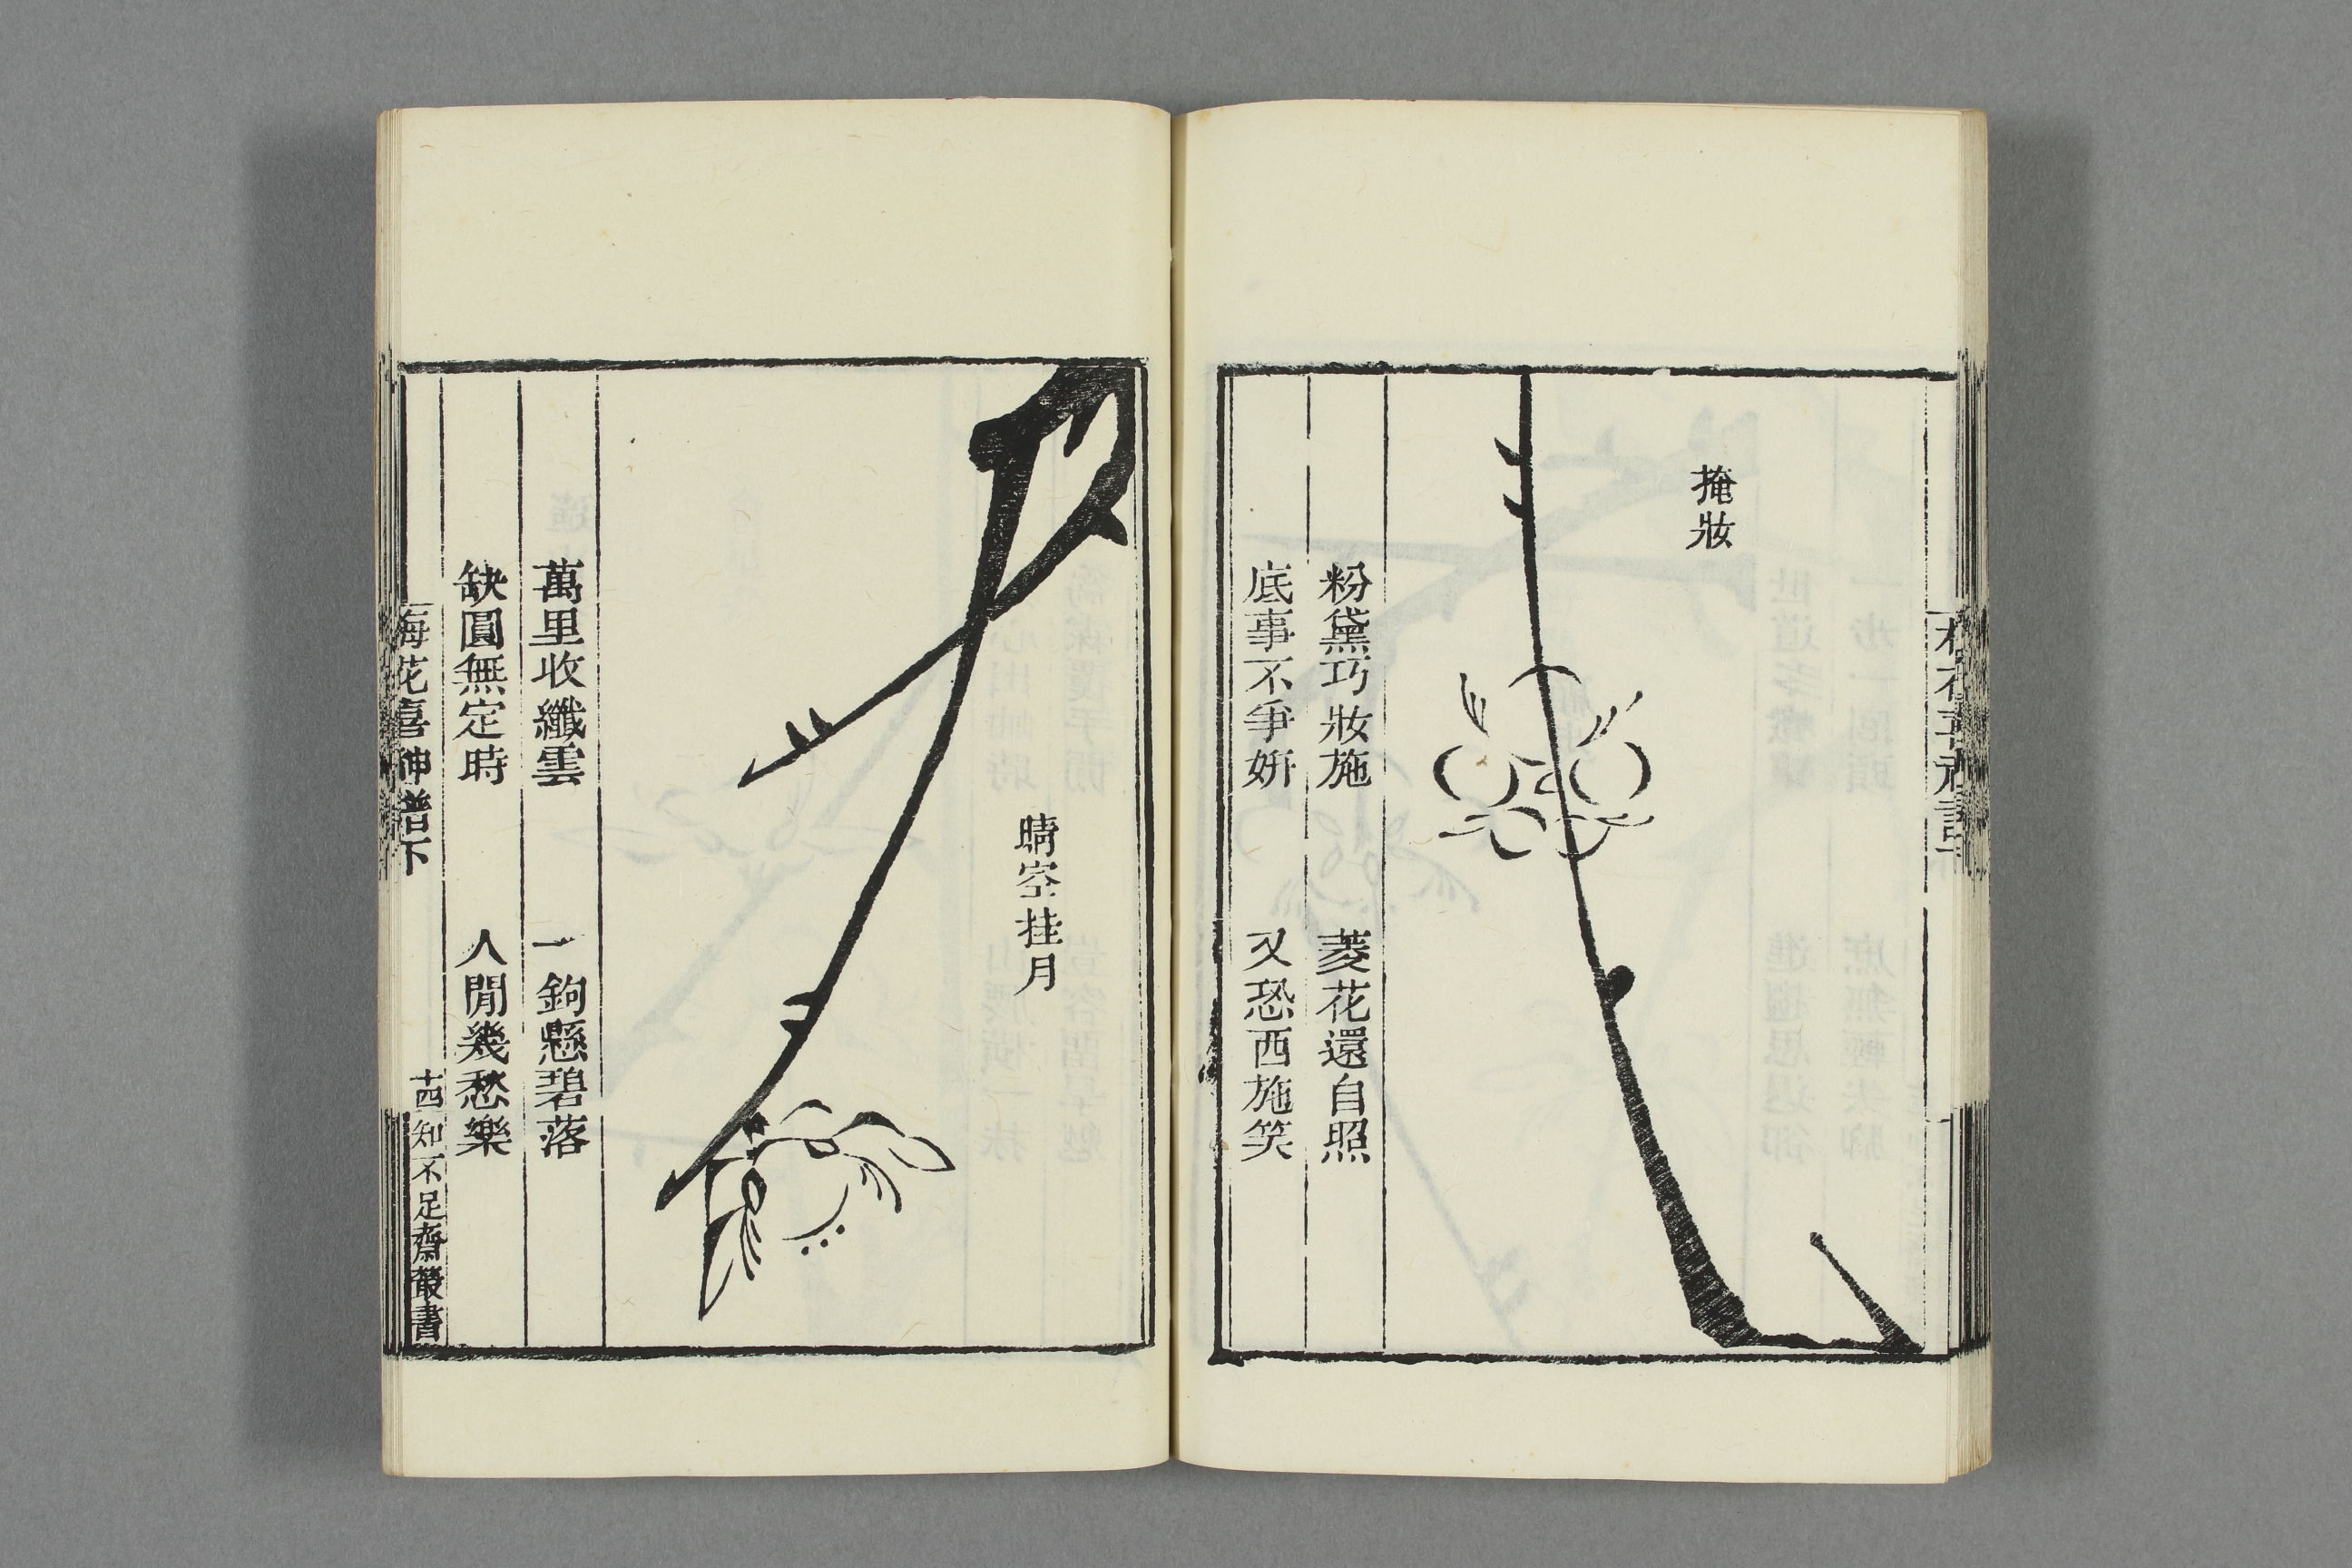 掩妝
粉黛巧妝施 菱花還自照
底事不爭妍 又恐西施笑
晴空挂月
萬里收纖雲 一鉤懸碧落
缺圓無定時 人閒幾愁樂
梅花喜神譜下 十四 知不足齋叢書